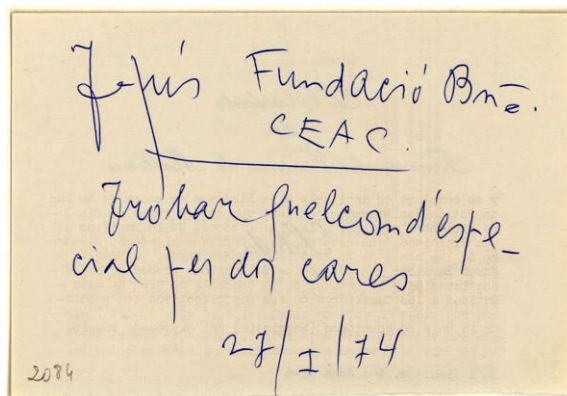 Tapís Fundació Bna.
CEAC.
Trobar quelcom d'espe-
cial per dos cares
27/I/74
2084